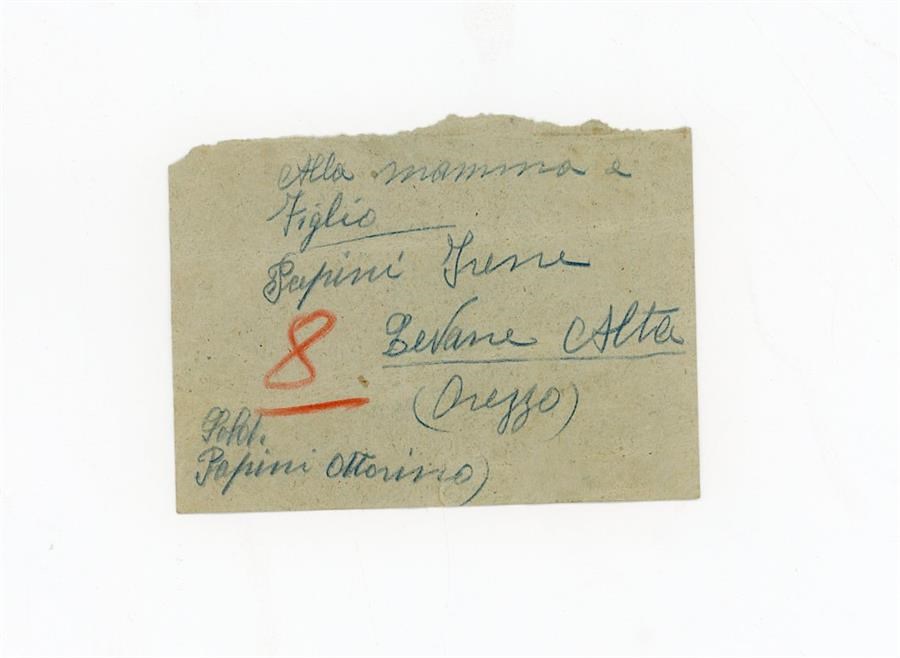 Alla mamma e
Figlio
Papini Irene
Levane Alta
8
(Arezzo)
Sold.
Papini Ottorino)